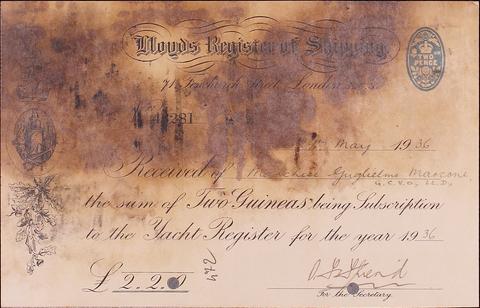 Lloyds Register of Shipping,
71, Fenchurch Street, London
TWO PENCE
281
May 1936
Received of Marchese Guglielmo Marconi,
G.C.V.O., LL.D,
the sum of Two Guineas being Subscription
to the Yacht Register for the year 1936
£ 2.2.0
For the Secretary.